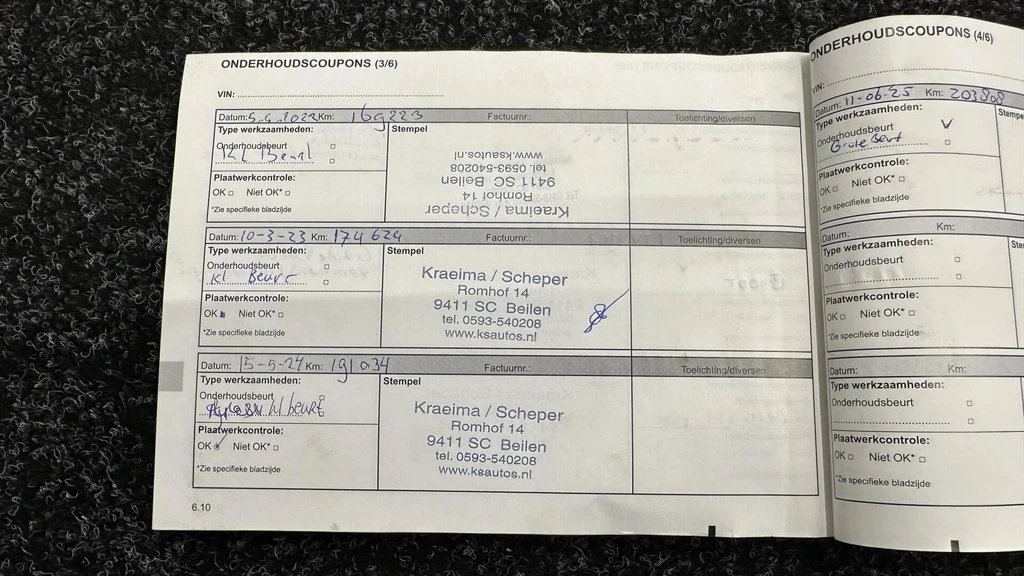 ONDERHOUDSCOUPONS (3/6)
VIN:
Datum: 5-9-2022 Km: 169223 Factuurnr.: Toelichting/diversen
Type werkzaamheden: Stempel
Onderhoudsbeurt
Kl Beurt
Plaatwerkcontrole:
OK Niet OK*
*Zie specifieke bladzijde
Kraeima / Scheper
Romhof 14
9411 SC Beilen
tel. 0593-540208
www.ksautos.nl
Datum: 10-3-23 Km: 174624 Factuurnr.: Toelichting/diversen
Type werkzaamheden: Stempel
Onderhoudsbeurt
Kl Beurt
Plaatwerkcontrole:
OK Niet OK*
*Zie specifieke bladzijde
Kraeima / Scheper
Romhof 14
9411 SC Beilen
tel. 0593-540208
www.ksautos.nl
Datum: 15-5-24 Km: 191034 Factuurnr.: Toelichting/diversen
Type werkzaamheden: Stempel
Onderhoudsbeurt
kl beurt
Plaatwerkcontrole:
OK Niet OK*
*Zie specifieke bladzijde
Kraeima / Scheper
Romhof 14
9411 SC Beilen
tel. 0593-540208
www.ksautos.nl
6.10
ONDERHOUDSCOUPONS (4/6)
VIN:
Datum: 11-06-25 Km: 203808
Type werkzaamheden:
Onderhoudsbeurt
Grote Beurt
Plaatwerkcontrole:
OK Niet OK*
*Zie specifieke bladzijde
Datum: Km:
Type werkzaamheden:
Onderhoudsbeurt
Plaatwerkcontrole:
OK Niet OK*
*Zie specifieke bladzijde
Datum: Km:
Type werkzaamheden:
Onderhoudsbeurt
Plaatwerkcontrole:
OK Niet OK*
*Zie specifieke bladzijde